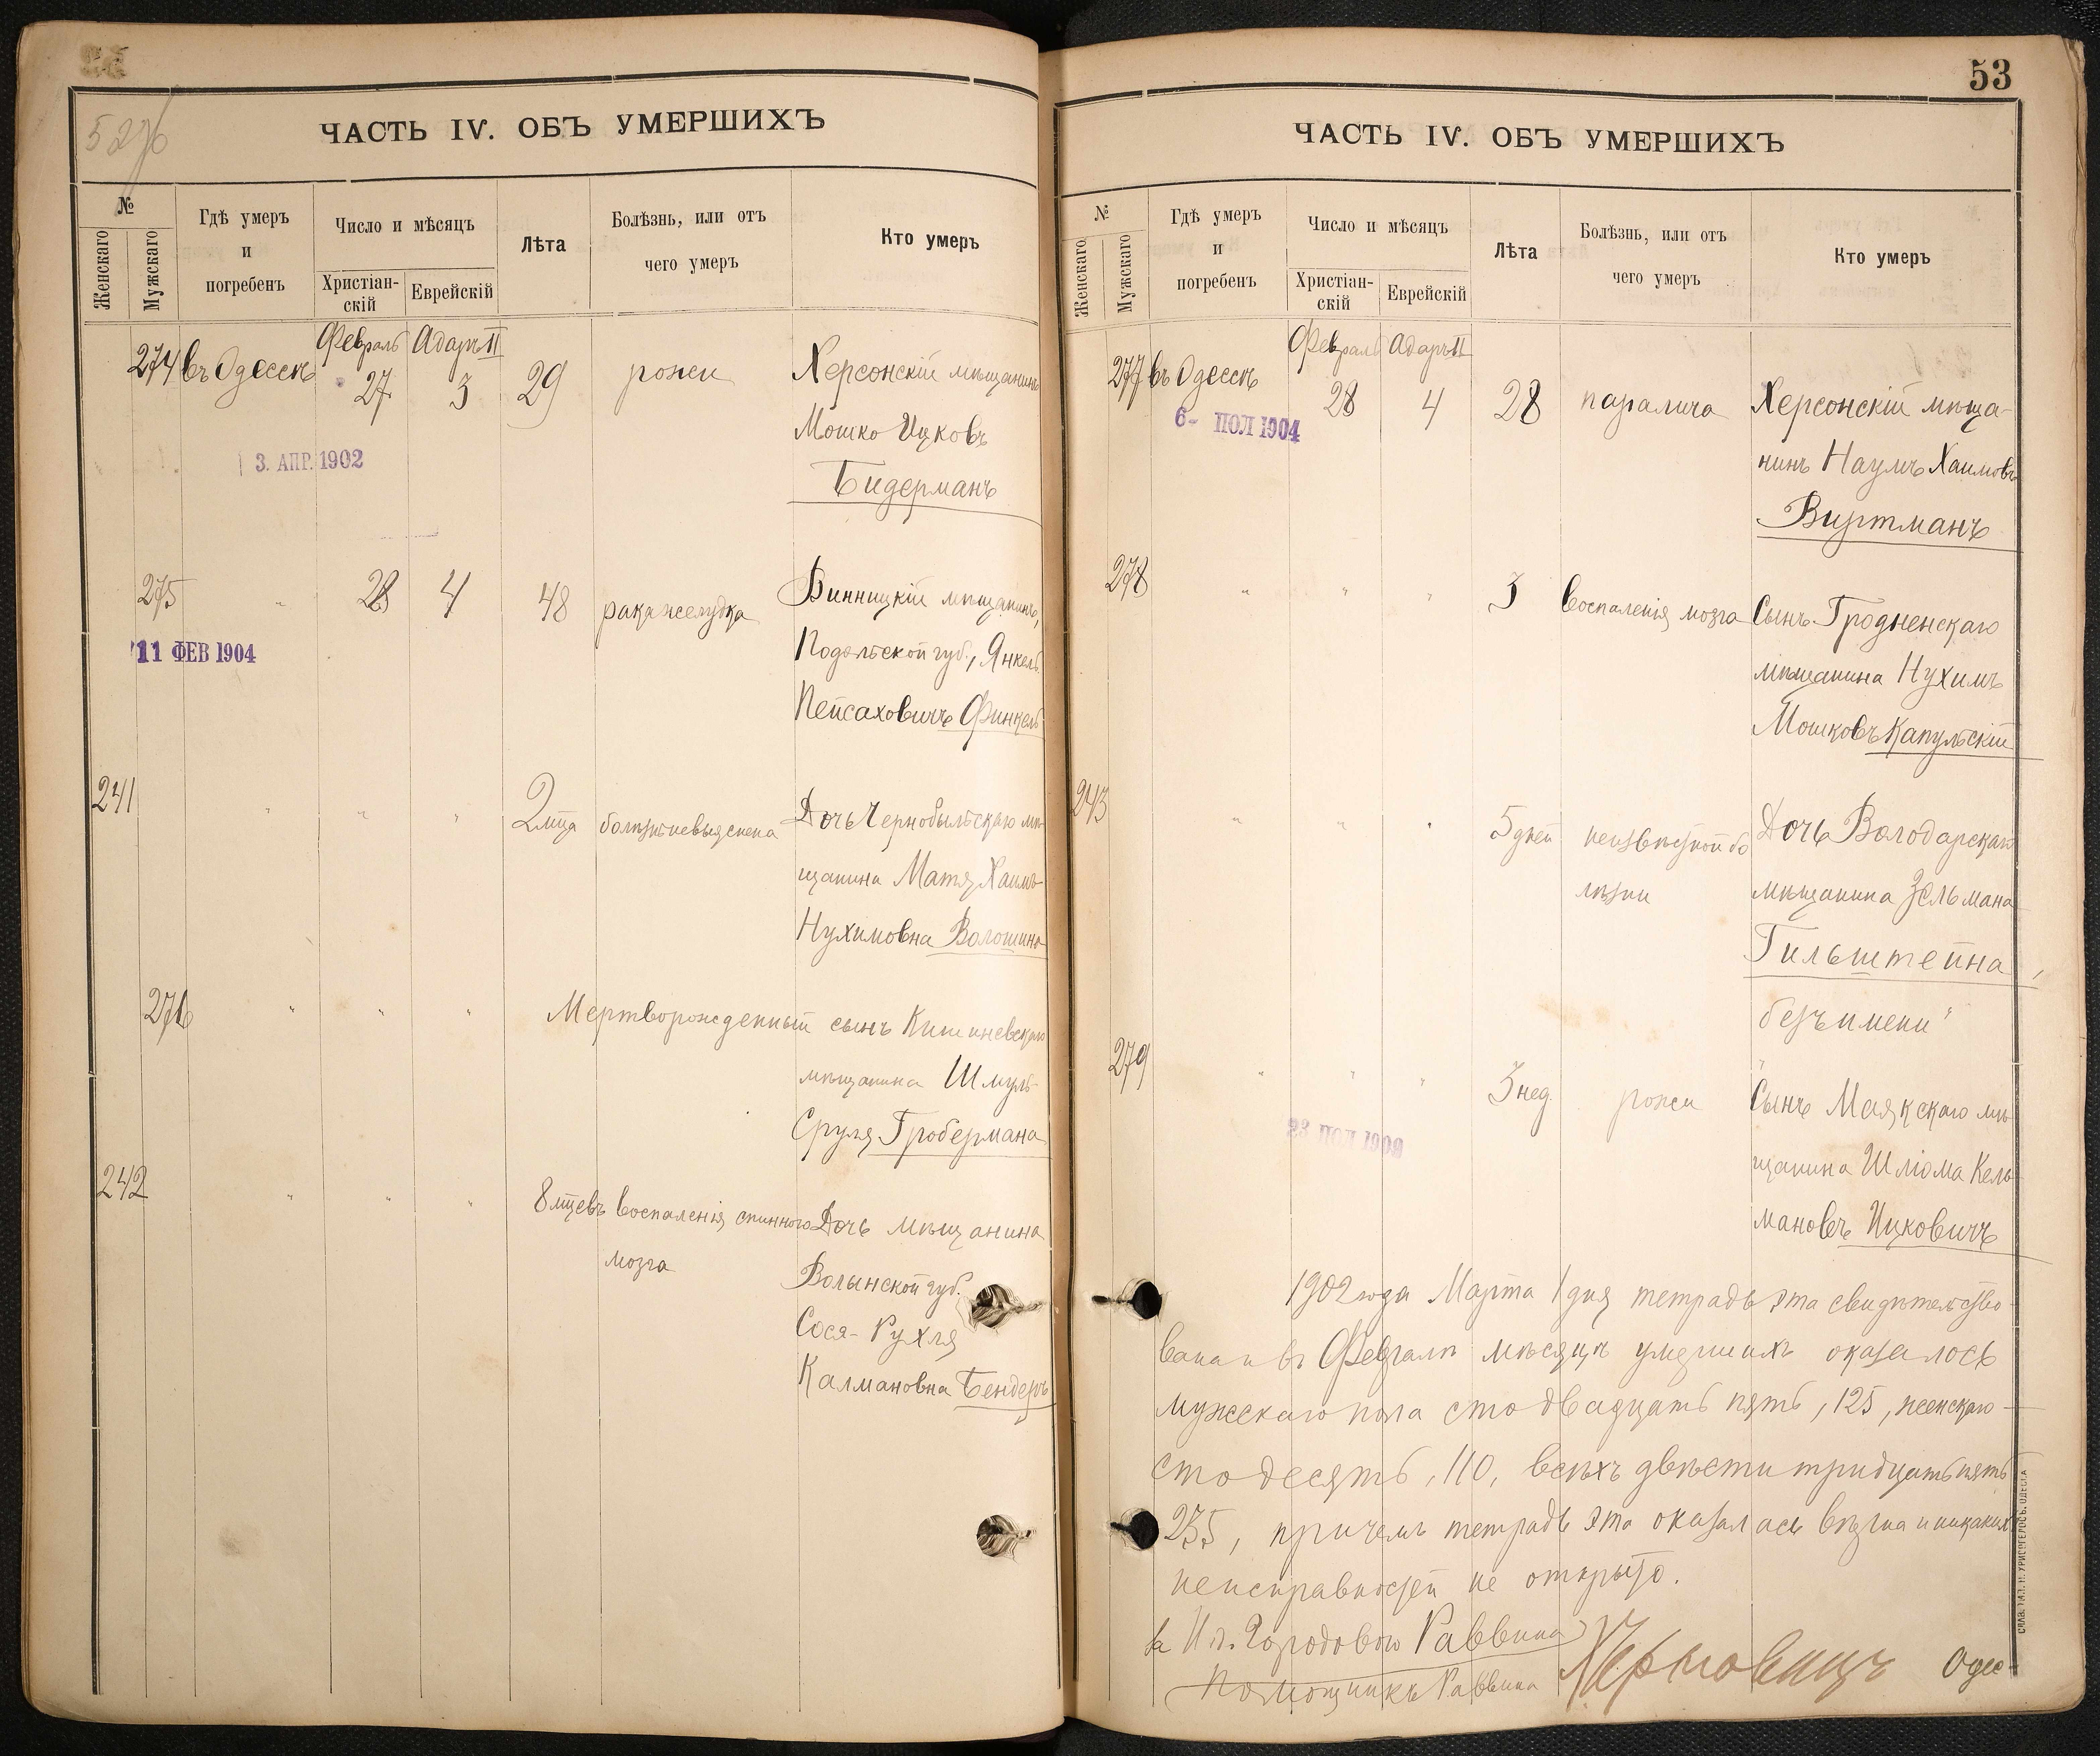 52 об
ЧАСТЬ IV. ОБЪ УМЕРШИХЪ
№
Женскаго
Мужскаго
Гдѣ умеръ
и
погребенъ
Число и мѣсяцъ
Христіан-
скій
Еврейскій
Лѣта
Болѣзнь, или отъ
чего умеръ
Кто умеръ
Февраль Адаръ II
274 въ Одессѣ 27 3 29 рожи Херсонскій мѣщанинъ
Мошко Ицковъ
3. АПР. 1902
Бидерманъ
275 " 28 4 48 рака желудка Винницкій мѣщанинъ,
Подольской губ., Янкель
11 ФЕВ 1904
Пейсаховичъ Финкель
241 " " " 2 мца болѣзни Дочь Чернобыльскаго мѣ-
щанина Матя Хаимъ-
Нухимовна Волошина
276 " " " Мертворожденный сынъ Кишиневскаго
мѣщанина Шмуль-
Сруля Гробермана
242 " " " 8 мцевъ воспаленія спинного Дочь мѣщанина
мозга
Волынской губ.
Сося-Рухля
Калмановна Бендеръ
53
ЧАСТЬ IV. ОБЪ УМЕРШИХЪ
№
Женскаго
Мужскаго
Гдѣ умеръ
и
погребенъ
Число и мѣсяцъ
Христіан-
скій
Еврейскій
Лѣта
Болѣзнь, или отъ
чего умеръ
Кто умеръ
Февраль Адаръ II
277 въ Одессѣ 28 4 28 паралича Херсонскій мѣща-
6- ІЮЛ 1904
нинъ Наумъ Хаимовъ
Виртманъ
278 " " " 3 воспаленія мозга Сынъ Гродненскаго
мѣщанина Нухимъ
Мошковъ Капульскій
243 " " " 5 дней неизвѣстной бо Дочь Володарскаго
лѣзни мѣщанина Зельмана
Гильштейна,
безъ имени"
279 " " " 3 нед. рожи Сынъ Маякскаго мѣ-
1909
щанина Шліома Кель-
мановъ Ицковичъ
1902 года Марта 1 дня тетрадь эта свидѣтельство-
вана и въ Февралѣ мѣсяцѣ умершихъ оказалось
мужскаго пола сто двадцать пять, 125, женскаго -
сто десять, 110, всѣхъ двѣсти тридцать пять
235, причемъ тетрадь эта оказалась вѣрна и никакихъ
неисправностей не открыто.
За И.д. Городового Раввина
Помощникъ Раввина Черновицъ Одес-